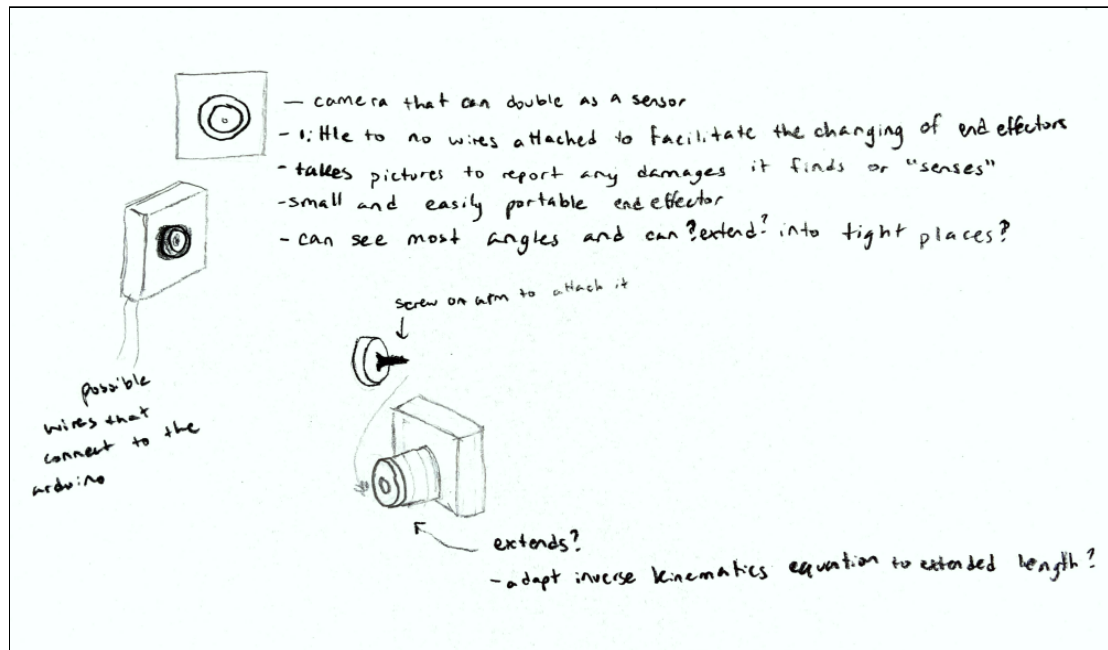 — camera that can double as a sensor
- little to no wires attached to facilitate the changing of end effectors
- takes pictures to report any damages it finds or "senses"
- small and easily portable end effector
- can see most angles and can ?extend? into tight places?
screw on arm to attach it
possible
wires that
connect to the
arduino
extends?
- adapt inverse kinematics equation to extended length?